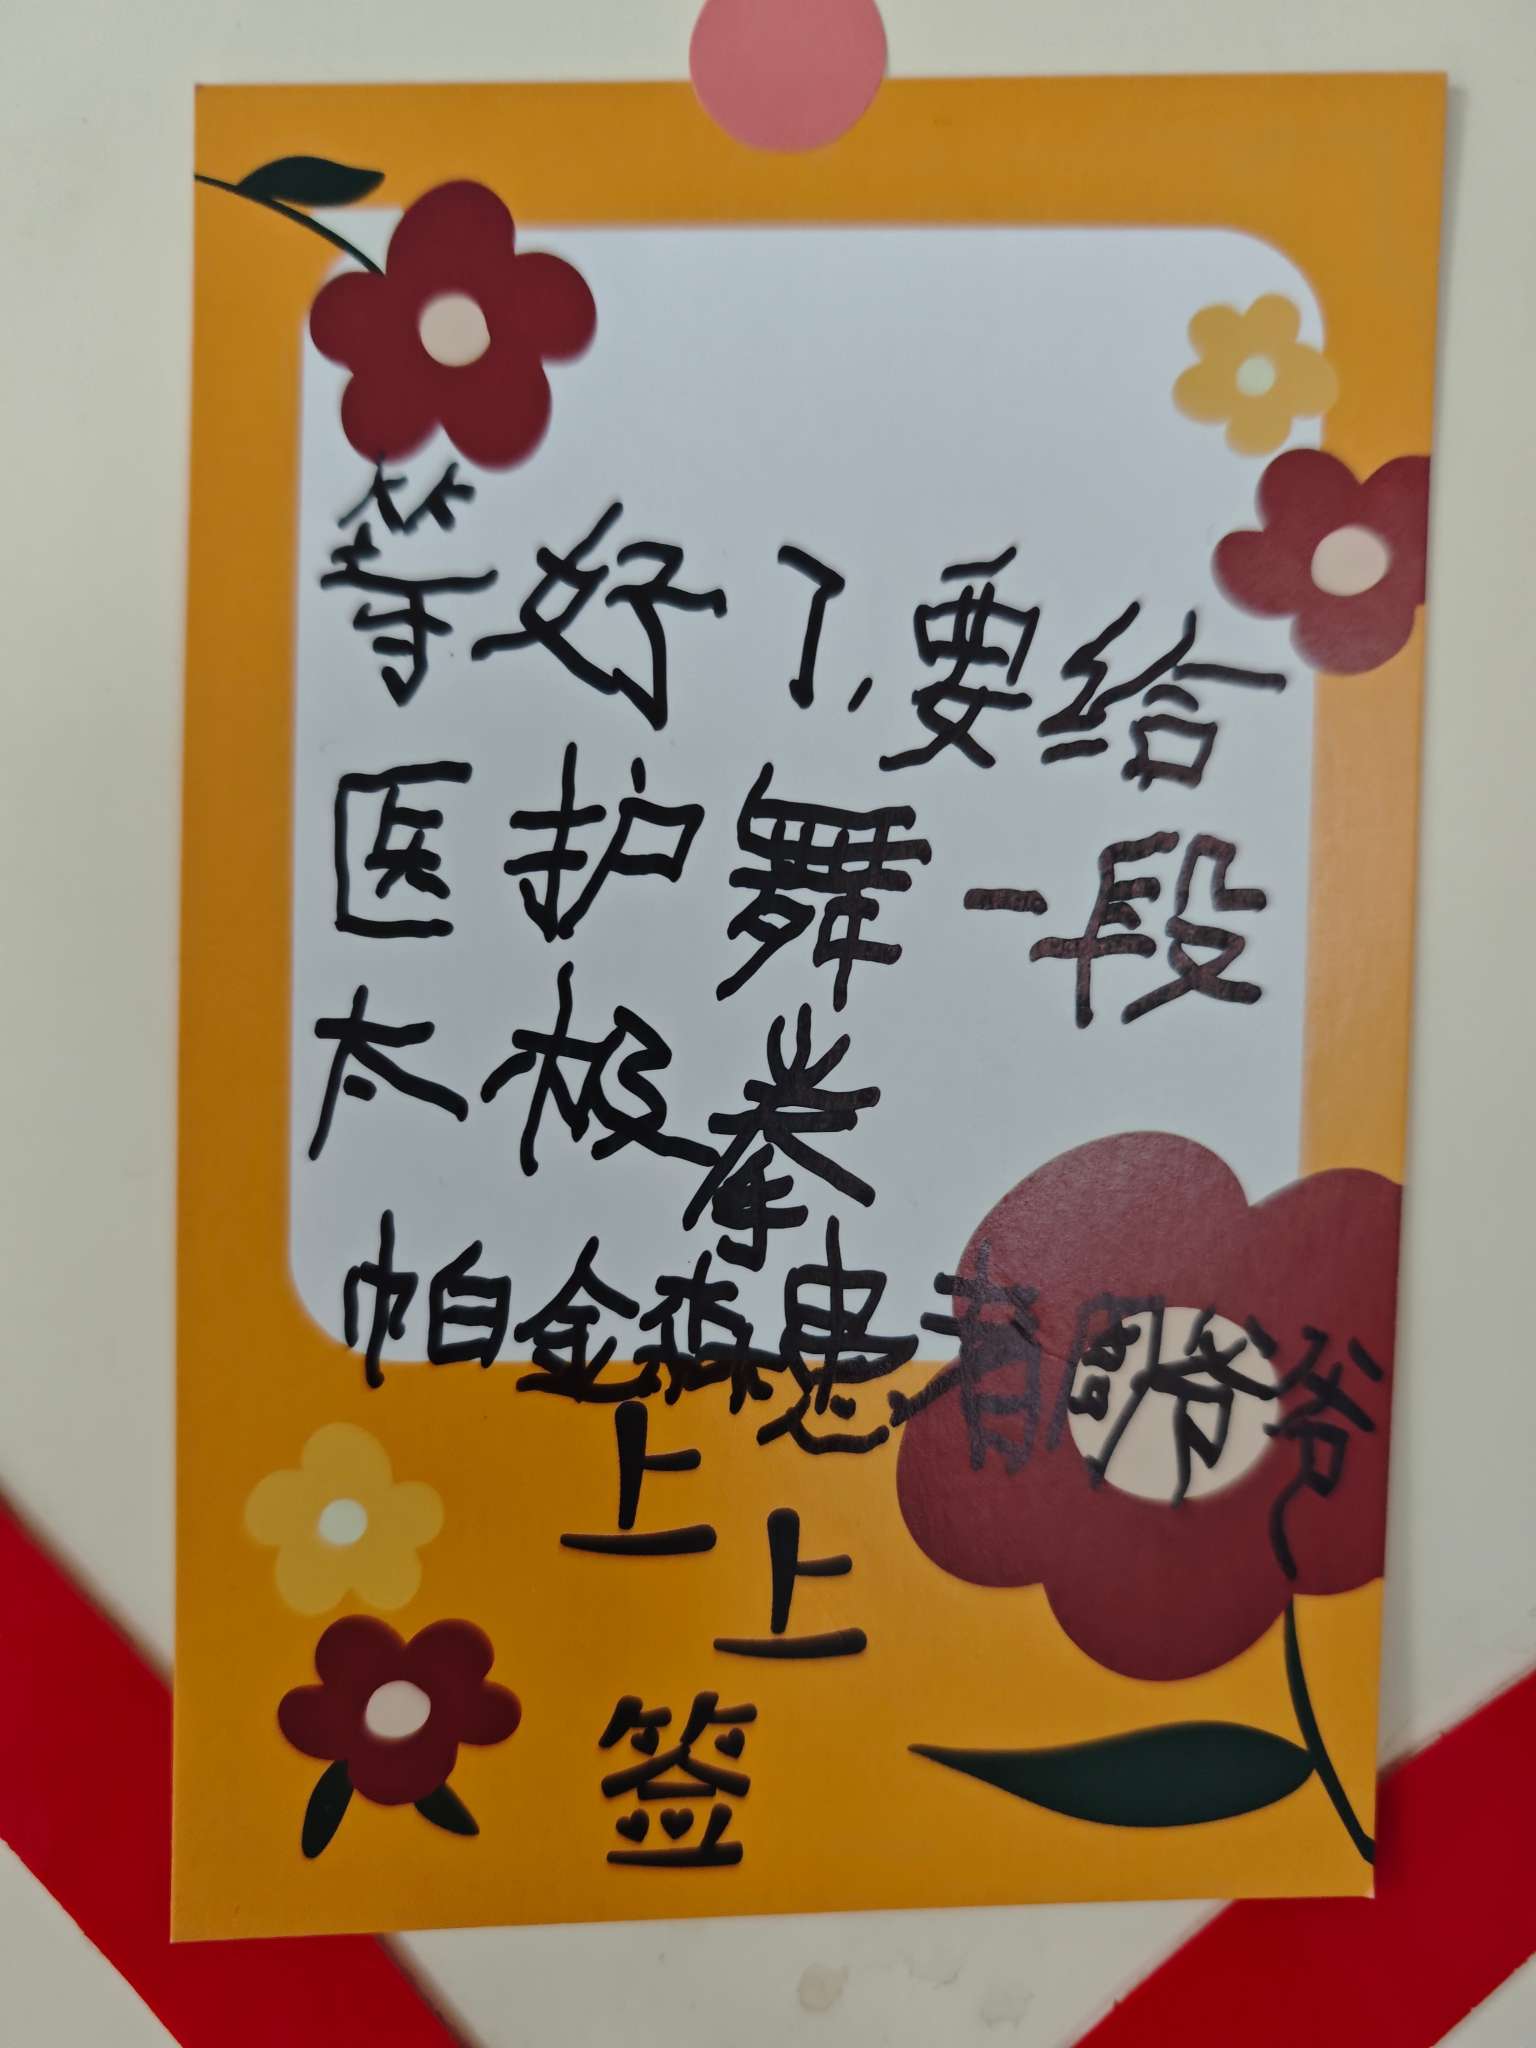 等好了,要给
医护舞一段
太极拳
帕金森患者周爷爷
上
上
签